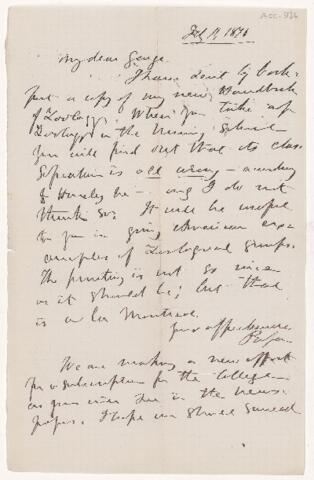 Acc. 976
Feb 19, 1876
My dear George
I have sent by book
post a copy of my new Handbook
of Zoology. When you take up
Zoology in the Mining School
you will find out that its class
ification is all wrong — according
to Huxley &c — and I do not
think so. It will be useful
to you in giving Canadian ex
amples of Zoological groups.
The printing is not so nice
as it should be; but that
is a la Montreal.
Your affectionate
We are making a new effort
for a subscription for the College
as you will see in the news
papers. I hope we shall succeed